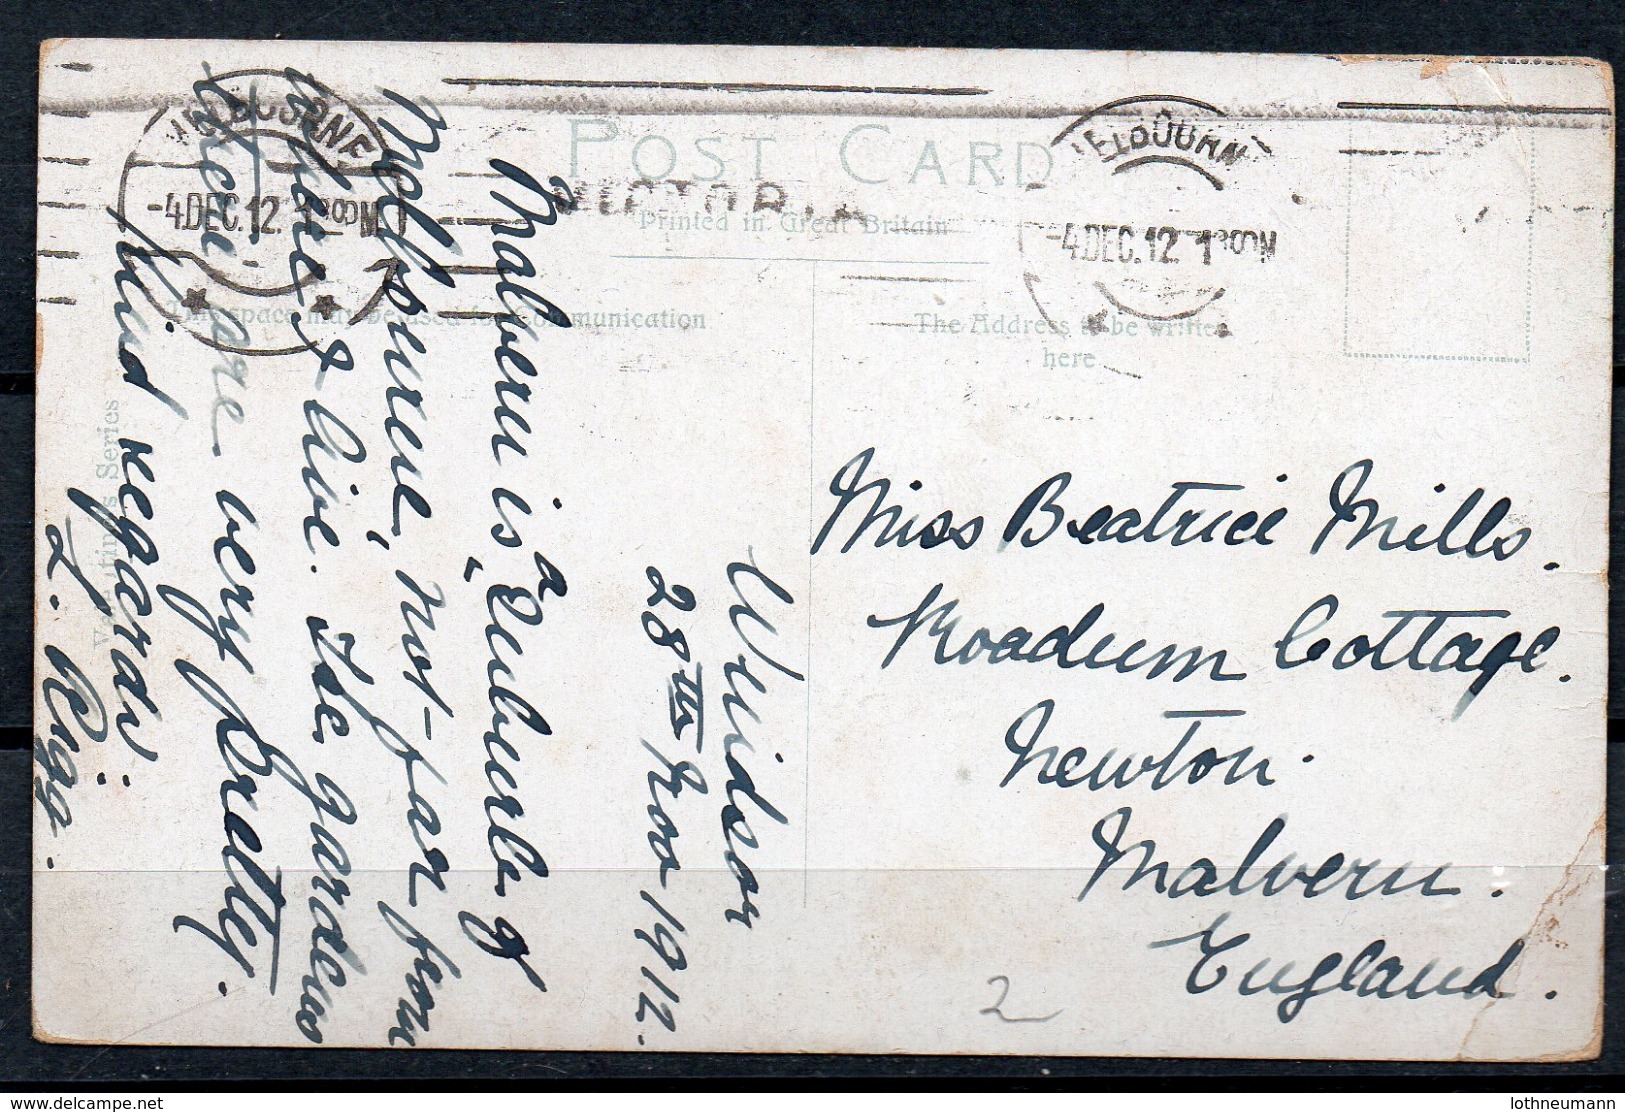 POST CARD
Printed in Great Britain
This space may be used for Communication
The Address to be written
here
MELBOURNE
-4 DEC. 12. 1 30 PM
VICTORIA
MELBOURNE
-4 DEC. 12 1 30 PM
Series
Windsor
28th Nov 1912.
Malvern is a "Suburb" of
Melbourne, not far from
where I live. The gardens
there are very pretty.
Kind regards.
L. Rigg.
Miss Beatrice Mills.
Roadum Cottage.
Newton.
Malvern.
England.
2
delcampe.net
lothneumann